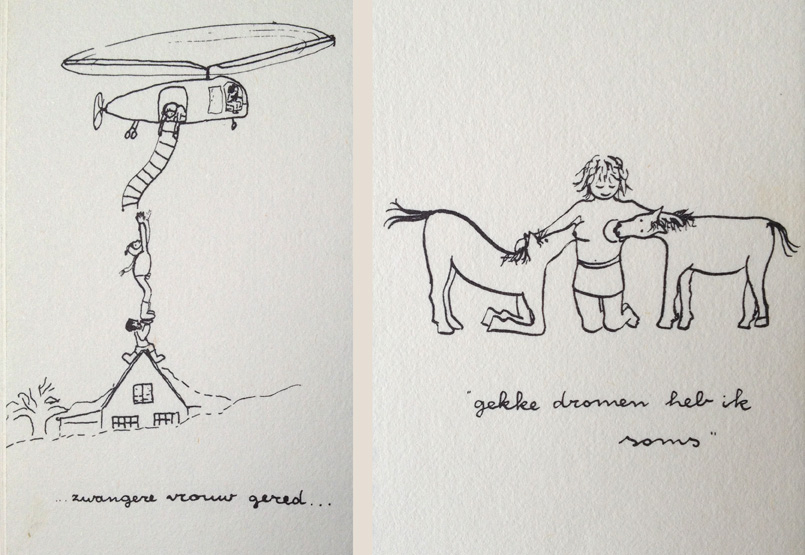 ...zwangere vrouw gered...
"gekke dromen heb ik
soms"